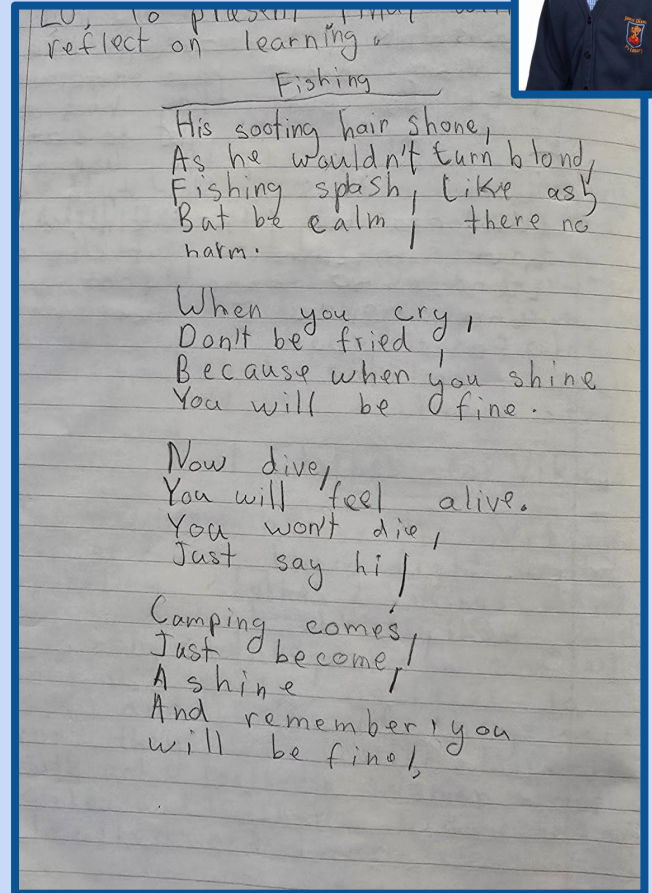 LO: To present final
reflect on learning.
Fishing
His sooting hair shone,
As he wouldn't turn blond,
Fishing splash, Like ash
But be calm, there no
harm.
When you cry,
Don't be fried,
Because when you shine
You will be fine.
Now dive,
You will feel alive.
You won't die,
Just say hi!
Camping comes,
Just become,
A shine
And remember, you
will be fine!